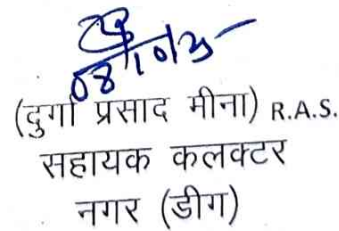 08/10/25
(दुर्गा प्रसाद मीना) R.A.S.
सहायक कलक्टर
नगर (डीग)